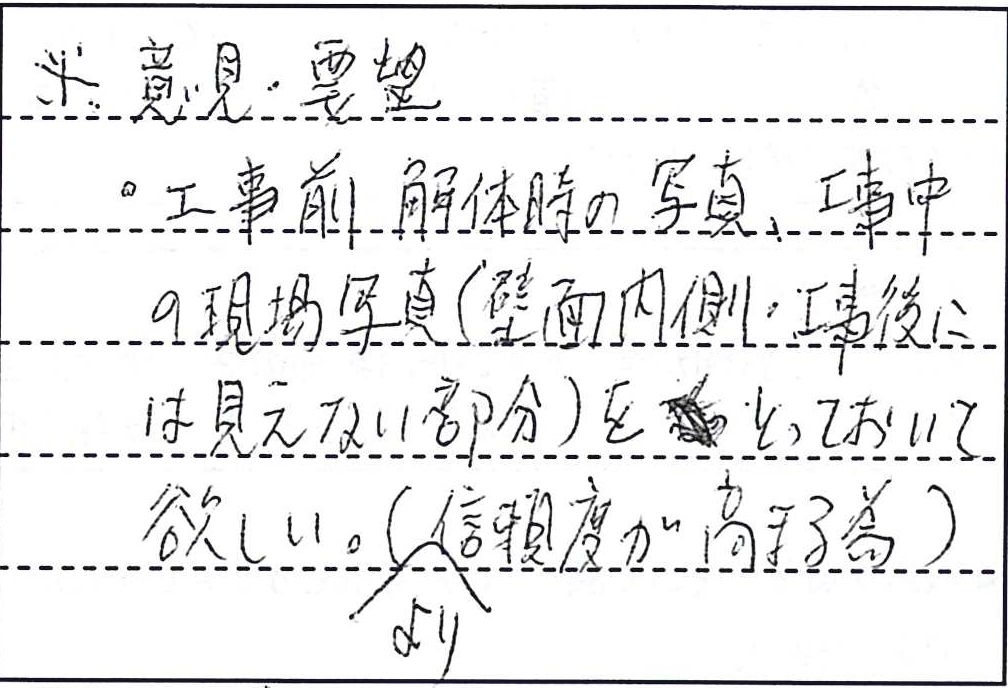 ※意見・要望
。工事前 解体時の写真、工事中
の現場写真(壁面内側・工事後に
は見えない部分)を とっておいて
欲しい。(より信頼度が高まる為)